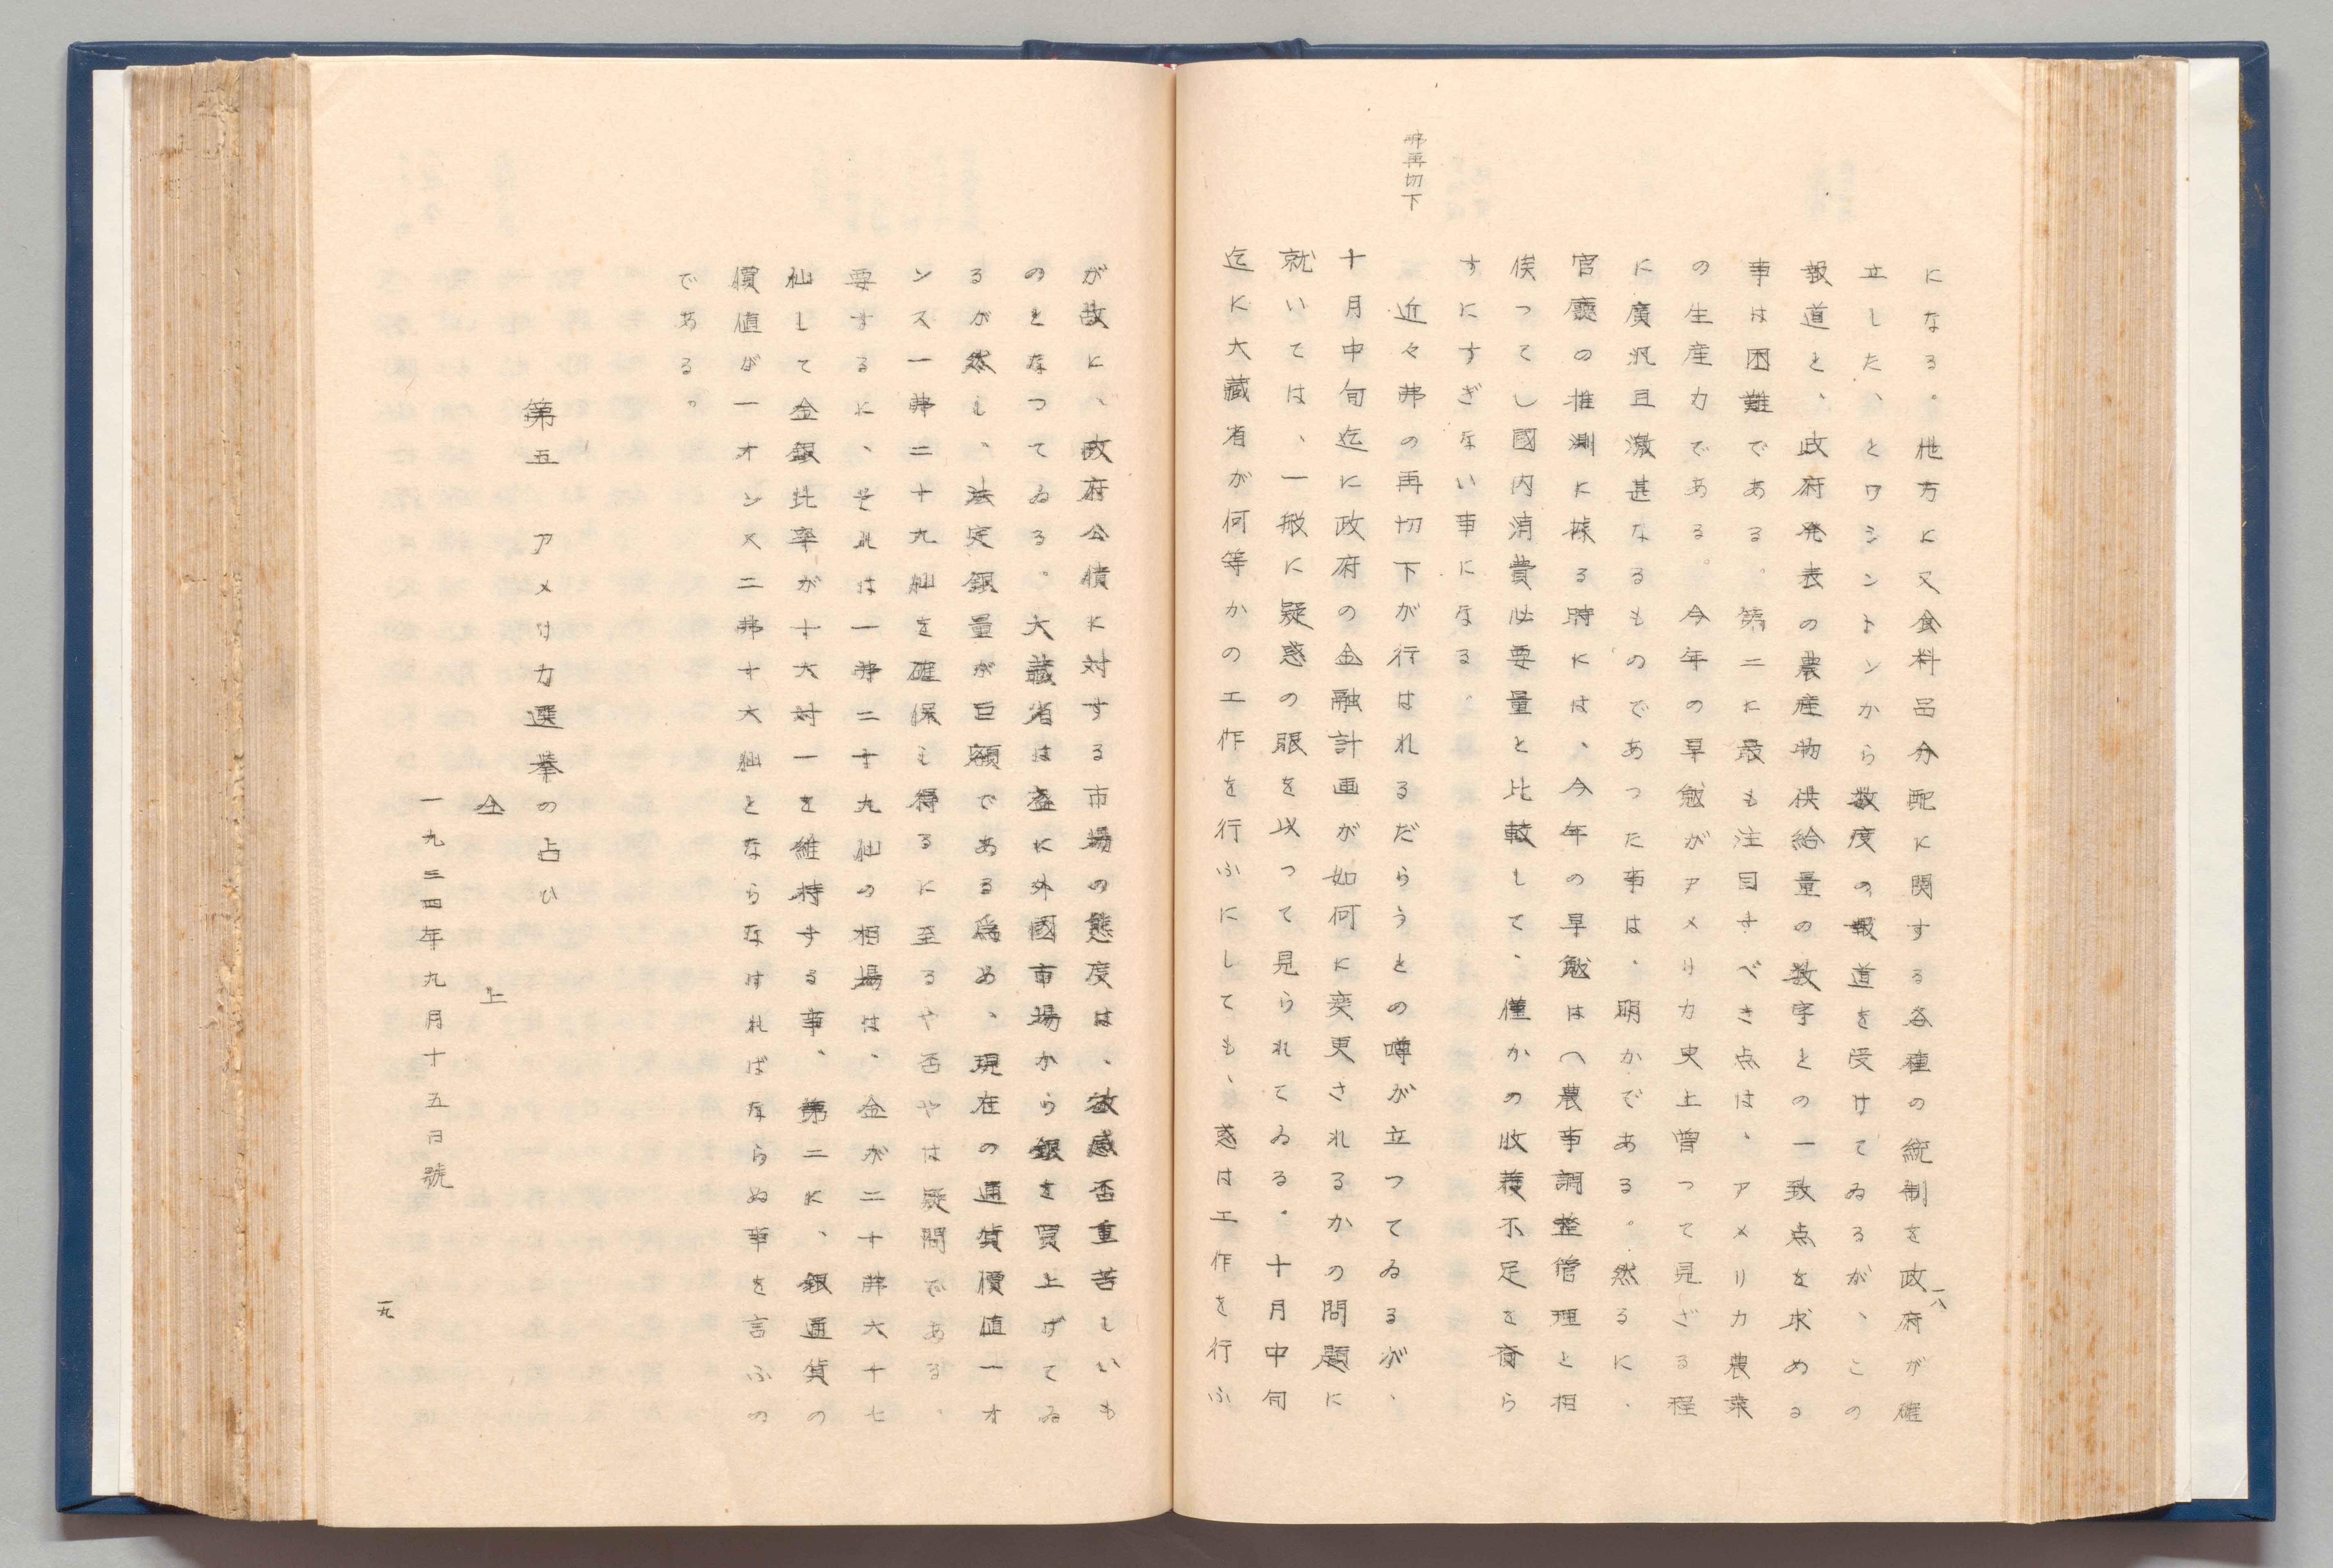 になる。他方に又食料品分配に関する各種の統制を政府が確
立した、とワシントンから数度の報道を受けてゐるが、この
報道と、政府発表の農産物供給量の数字との一致点を求める
事は困難である。第二に最も注目すべき点は、アメリカ農業
の生産力である。今年の旱魃がアメリカ史上曽つて見ざる程
に廣汎且激甚なるものであつた事は、明かである。然るに、
官廳の推測に據る時には、今年の旱魃は〈農事調整管理と相
俟つてし國内消費必要量と比較して、僅かの收穫不足を齎ら
すにすぎない事になる。
弗再切下
近々弗の再切下が行はれるだらうとの噂が立つてゐるが、
十月中旬迄に政府の金融計画が如何に変更されるかの問題に
就いては、一般に疑惑の眼を以つて見られてゐる。十月中旬
迄に大藏省が何等かの工作を行ふにしても、惑は工作を行ふ
一八
が故に、政府公債に対する市場の態度は、敏感否重苦しいも
のとなつてゐる。大藏省は盛に外國市場から銀を買上げてゐ
るが然し、法定銀量が巨額である爲め、現在の通貨價値一オ
ンス一弗二十九仙を確保し得るに至るや否やは疑問である、
要するに、それは一弗二十九仙の相場は、金が二十弗六十七
仙して金銀比率が十六対一を維持する事、第二に、銀通貨の
價値が一オンス二弗十六仙とならなければならぬ事を言ふの
である。
第五 アメリカ選挙の占ひ
仝 上
一九三四年九月十五日號
一九